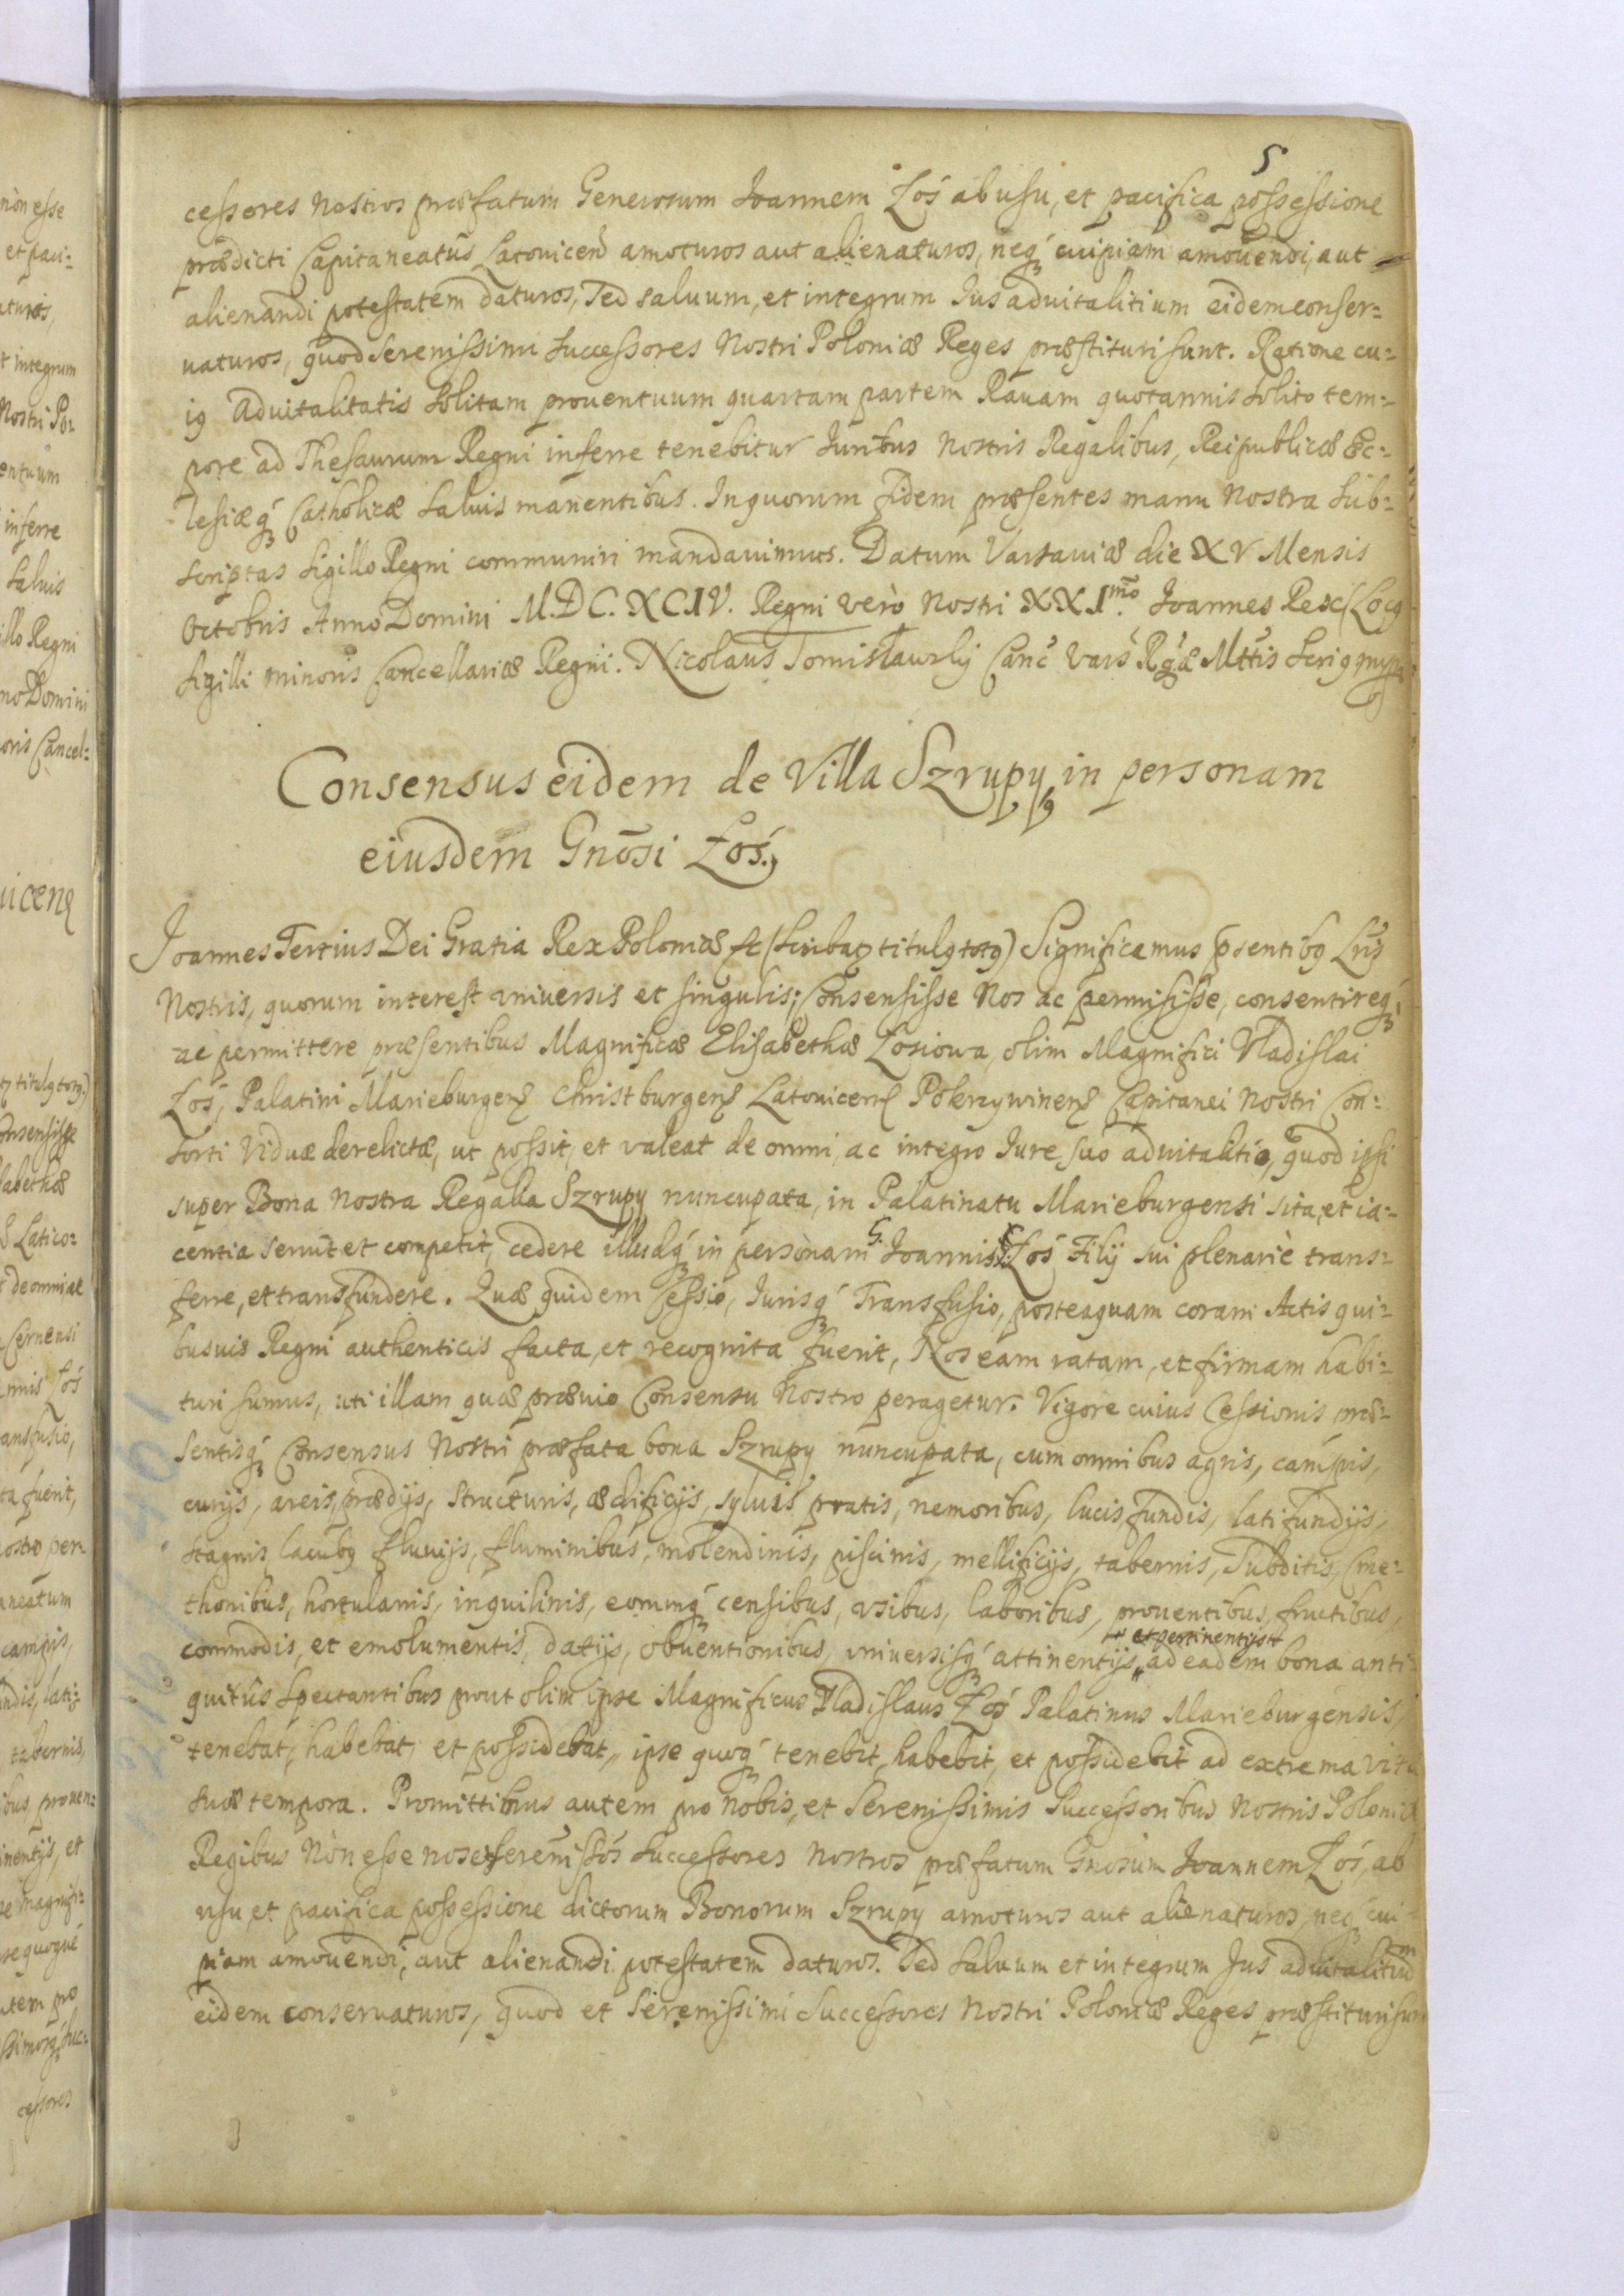 5
cessores Nostros præfatum Generosum Joannem Łoś ab usu, et pacifica possessione
prædicti Capitaneatus Latovicen̄ amoturos aut alienaturos, neq́ꝫ cuipiam amovendi, aut
alienandi potestatem daturos, Sed salvum, et integrum Jus advitalitium eidem conser:
vaturos, quod Serenissimi Successores Nostri Poloniæ Reges præstituri sunt. Ratione cu:
iꝰ Advitalitatis Solitam proventuum quartam partem Ravam quotannis solito tem:
pore ad Thesaurum Regni inferre tenebitur Juribus Nostris Regalibus, Reipublicæ Ec:
lesiæq́ꝫ Catholicæ Salvis manentibus. In quorum fidem præsentes manu Nostra Sub:
scriptas Sigillo Regni communiri mandavimus. Datum Varsaviæ die XV Mensis
Octobris Anno Domini M.DC.XCIV. Regni verò Nostri XXI.mo Joannes Rex (Locꝰ
Sigilli minoris Cancellariæ Regni. Nicolaus Tomisławsky Canc̄ Vars̄ Rgæ Mttis
Consensus eidem de Villa Szrupy in personam
eiusdem Gnōsi Łoś.
Joannes Tertius Dei Gratia Rex Poloniæ &c (Scribatꝛ titulꝰ totꝰ) Significamus p̄sentibꝰ Lr̄is
Nostris, quorum interest universis et singulis; Consensisse Nos ac permisisse, consentireq́ꝫ
ac permittere præsentibus Magnificæ Elisabethæ Łosiowa, olim Magnifici Vladislai
Łoś, Palatini Marieburgen̄ Christburgen̄ Latovicen̄ Pokrzywinen̄ Capitanei Nostri Con:
sorti Viduæ derelictæ, ut possit, et valeat de omni, ac integro Jure suo advitalitio, quod ipsi
super Bona Nostra Regalia Szrupy nuncupata, in Palatinatu Marieburgensi sita, et ia:
centia servit et competit, cedere illudq́ꝫ in personam G. Joannis Łoś Filij sui plenariè trans:
ferre, et transfundere. Quæ quidem Cessio, Jurisq́ꝫ Transfusio, posteaquam coram Actis qui:
busvis Regni authenticis facta, et recognita fuerit, Nos eam ratam, et firmam habi:
turi sumus, uti illam quæ prævio Consensu Nostro peragetur. Vigore cuius Cessionis præ:
sentisq́ꝫ Consensus Nostri præfata bona Szrupy nuncupata, cum omnibus agris, campis,
curijs, areis, prædijs, structuris, ædificijs, sylvis pratis, nemoribus, lucis fundis, latifundijs,
stagnis lacubꝰ fluvijs, fluminibus, molendinis, piscinis, mellificijs, tabernis, Subditis, Cme:
thonibus, hortulanis, inquilinis, eorumq́ꝫ censibus, usibus, laboribus, proventibus, fructibus,
commodis, et emolumentis, datijs, obventionibus, universisq́ꝫ attinentijs, et pertinentijs ad eadem bona anti:
quitùs spectantibus prout olim ipse Magnificus Vladislaus Łoś Palatinus Marieburgensis,
tenebat, habebat, et possidebat, ipse quoq́ꝫ tenebit, habebit, et possidebit ad extrema vitæ
suæ tempora. Promittimus autem pro Nobis, et Serenissimis Successoribus Nostris Poloniæ
Regibus Non esse nos et serenissōs Successores Nostros præfatum Gnosum Joannem Łoś, ab
usu, et pacifica possessione dictorum Bonorum Szrupy amoturos aut alienaturos, neq́ꝫ cui:
piam amovendi, aut alienandi potestatem daturos. Sed salvum et integrum Jus advitalitium
eidem conservaturos, quod et Serenissimi Successores Nostri Poloniæ Reges præstituri sunt